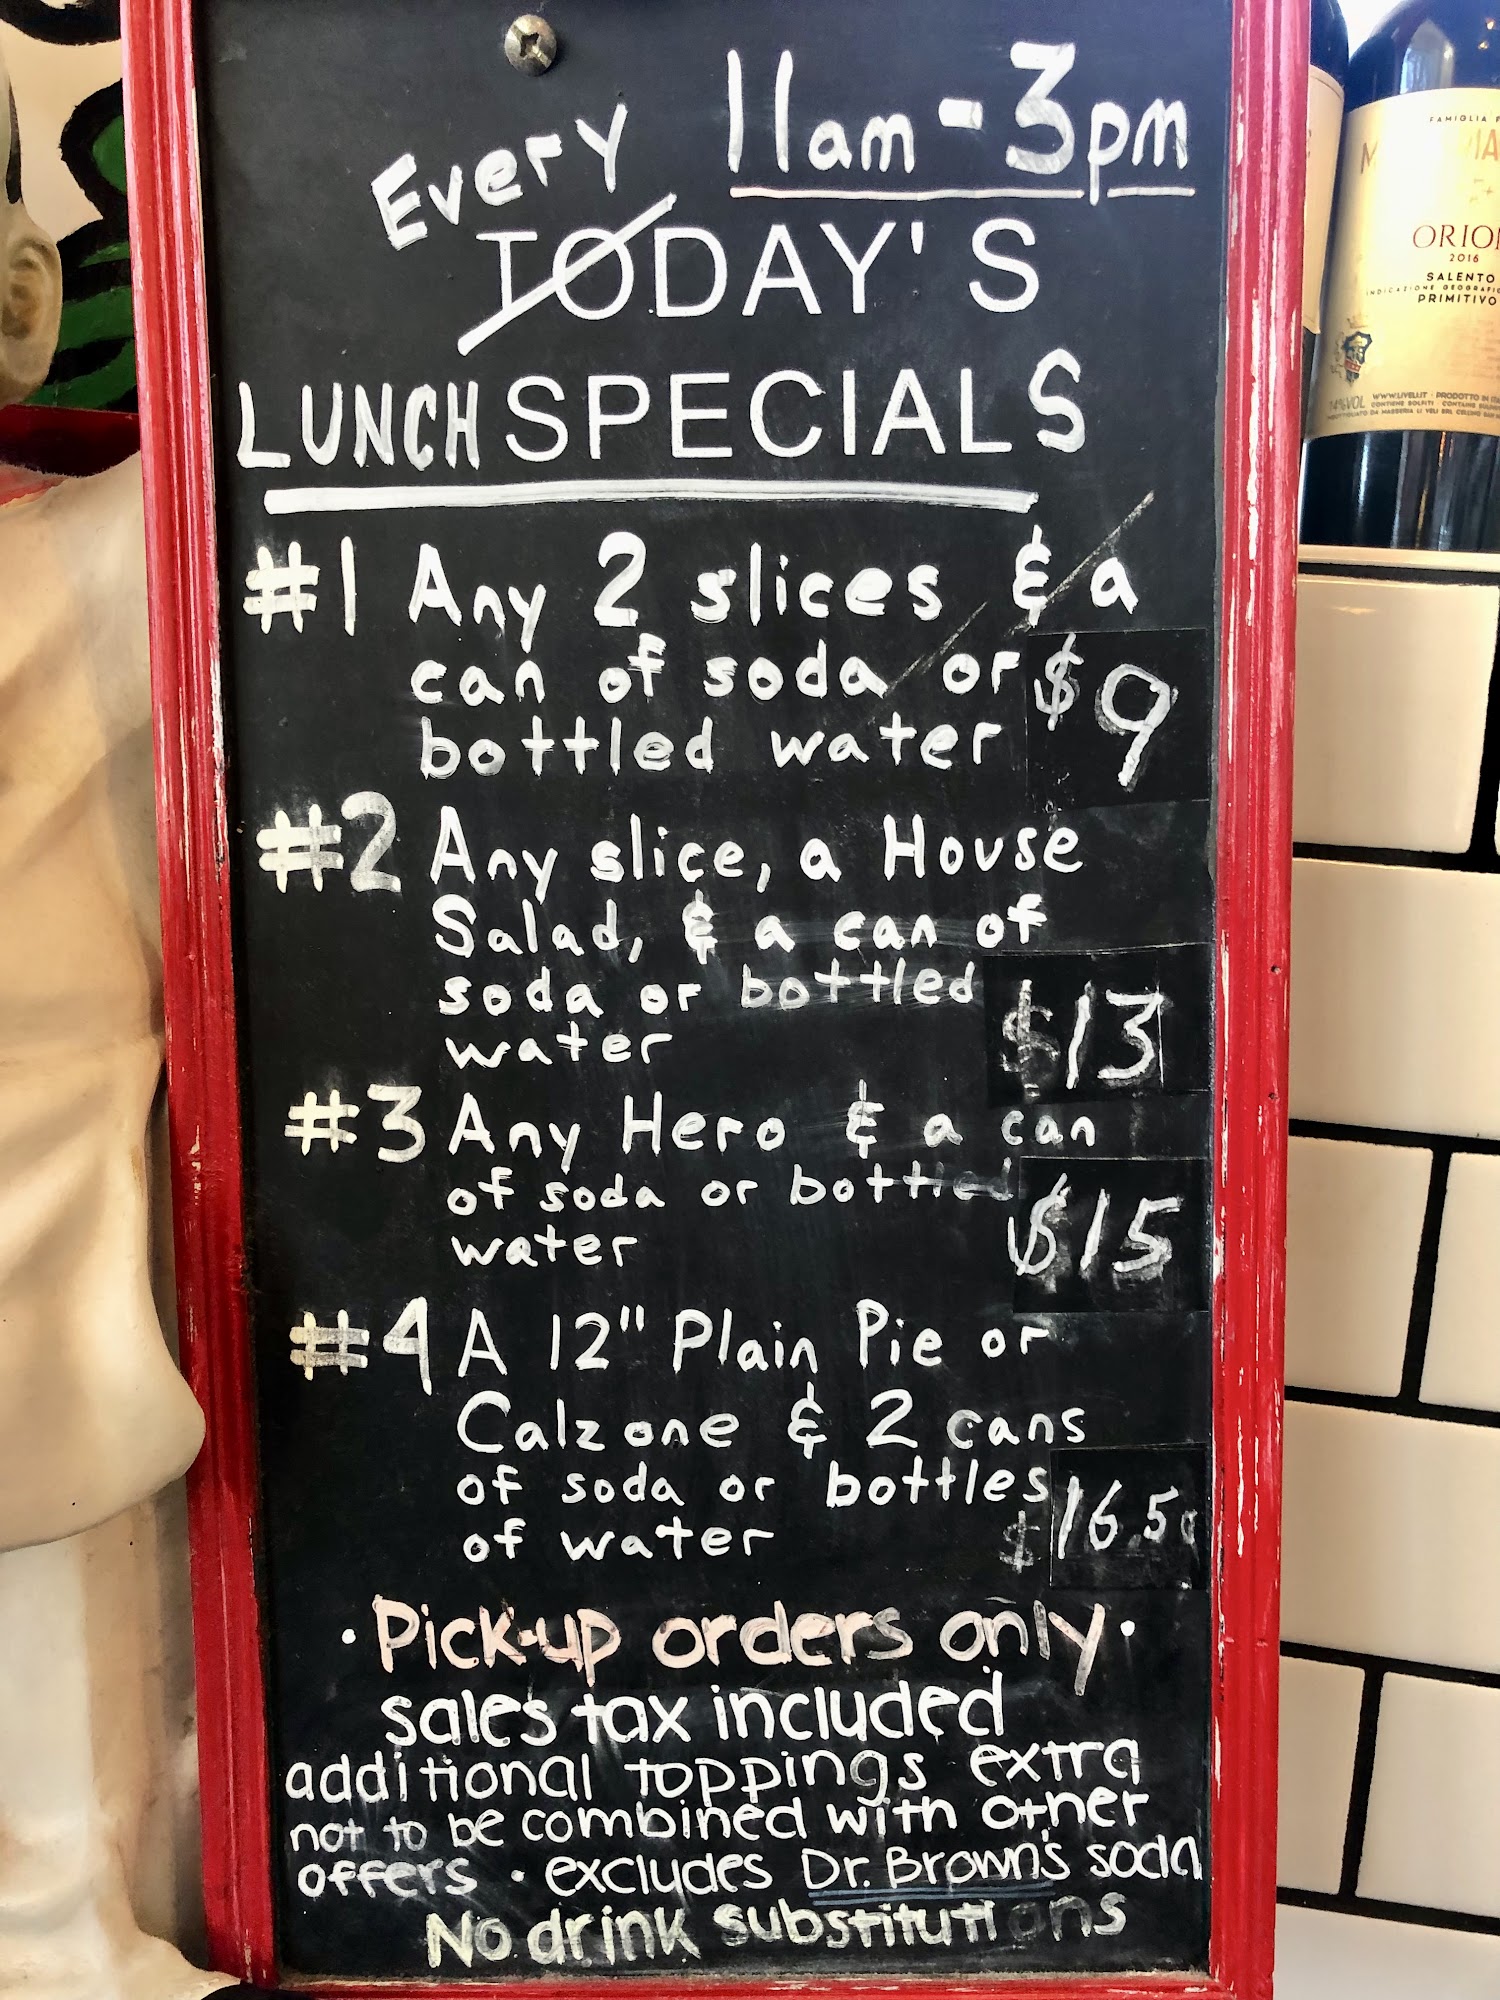 11am - 3pm
Every
TODAY'S
LUNCH SPECIALS
#1 Any 2 slices & a
can of soda or
bottled water
$9
#2 Any slice, a House
Salad, & a can of
soda or bottled
water
$13
#3 Any Hero & a can
of soda or bottled
water
$15
#4 A 12" Plain Pie or
Calzone & 2 cans
of soda or bottles
of water
$16.50
• Pick-up orders only •
sales tax included
additional toppings extra
not to be combined with other
offers • excludes Dr. Brown's soda
No drink substitutions
FAMIGLIA
2016
SALENTO
PRIMITIVO